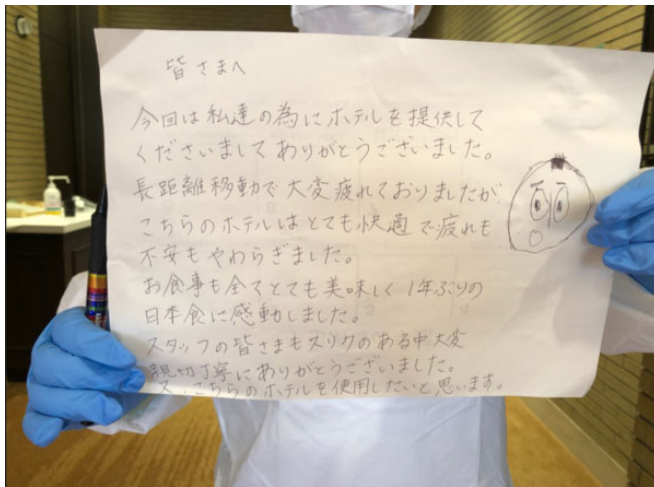 皆さまへ
今回は私達の為にホテルを提供して
くださいましてありがとうございました。
長距離移動で大変疲れておりましたが、
こちらのホテルはとても快適で疲れも
不安もやわらぎました。
お食事も全てとても美味しく1年ぶりの
日本食に感動しました。
スタッフの皆さまもリスクのある中大変
親切丁寧にありがとうございました。
又、こちらのホテルを使用したいと思います。